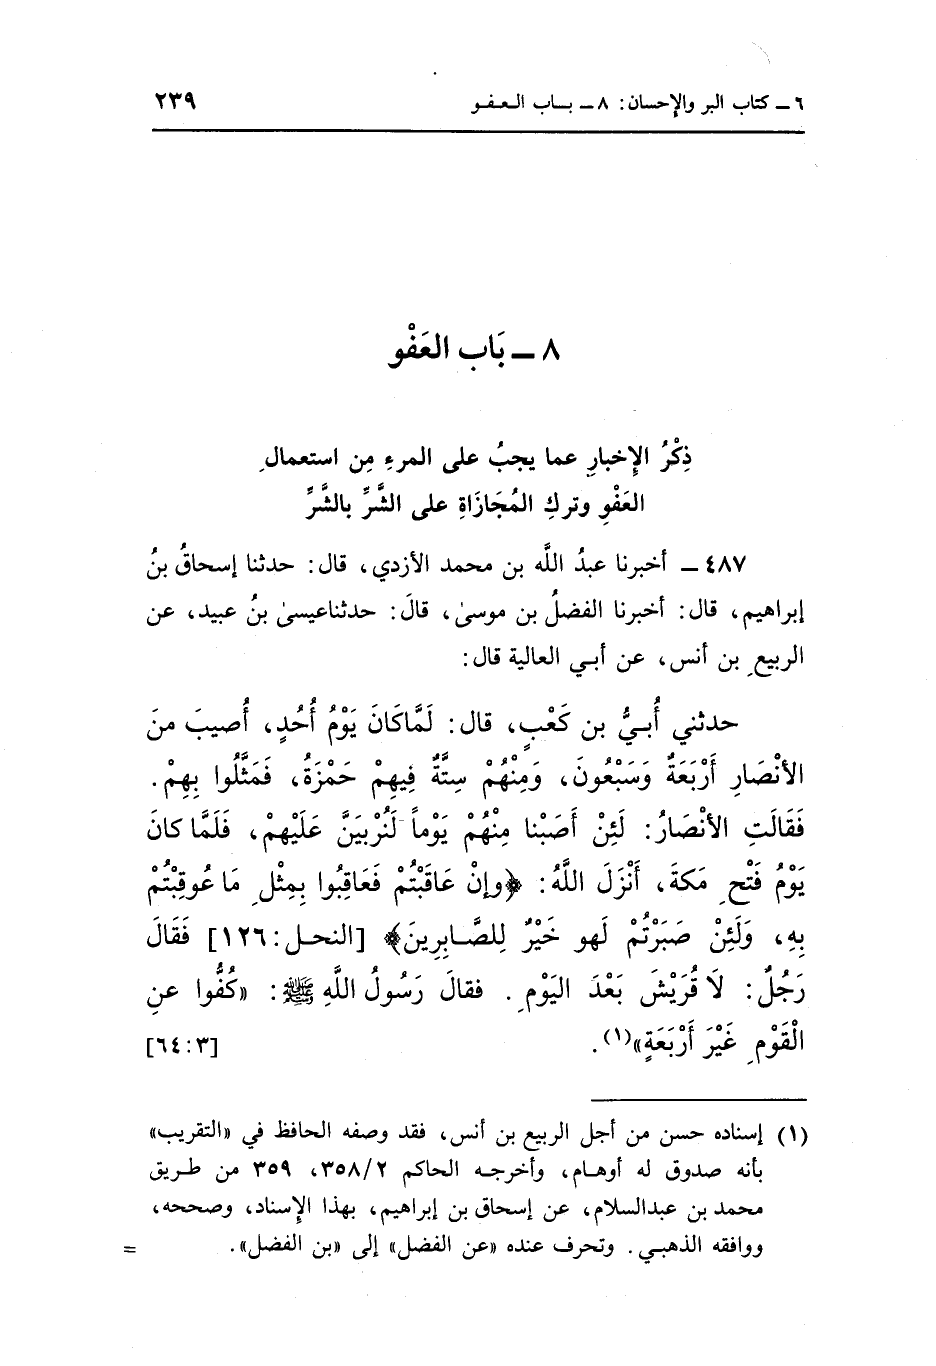 ٦ ــ كتاب البر والإحسان: ٨ ــ بــاب العـفـو ٢٣٩
٨ ــ بَاب العَفْو
ذِكْرُ الإِخبارِ عما يجبُ على المرءِ مِن استعمالِ
العَفْوِ وتركِ المُجَازَاةِ على الشَّرِّ بالشَّرِّ
٤٨٧ ــ أخبرنا عبدُ اللَّه بن محمد الأزدي، قال: حدثنا إسحاقُ بنُ
إبراهيم، قال: أخبرنا الفضلُ بن موسىٰ، قالَ: حدثناعيسىٰ بنُ عبيد، عن
الربيعِ بن أنس، عن أبـي العالية قال:
حدثني أُبـيُّ بن كَعْبٍ، قال: لَمَّاكَانَ يَوْمُ أُحُدٍ، أُصيبَ منَ
الأَنْصَارِ أَرْبَعَةٌ وَسَبْعُونَ، وَمِنْهُمْ سِتَّةٌ فِيهِمْ حَمْزَةُ، فَمَثَّلُوا بِهِمْ.
فَقَالَتِ الأنْصَارُ: لَئِنْ أَصَبْنا مِنْهُمْ يَوْماً لَنُرْبَيَنَّ عَلَيْهِمْ، فَلَمَّا كانَ
يَوْمُ فَتْحِ مَكةَ، أَنْزَلَ اللَّهُ: ﴿وإنْ عَاقَبْتُمْ فَعاقِبُوا بِمِثْلِ مَا عُوقِبْتُمْ
بِهِ، وَلَئِنْ صَبَرْتُمْ لَهو خَيْرٌ لِلصَّـابِرِينَ﴾ [النحـل:١٢٦] فَقَالَ
رَجُلٌ: لَا قُرَيْشَ بَعْدَ اليَوْمِ. فقالَ رَسُولُ اللَّهِ ﷺ: «كُفُّوا عنِ
الْقَوْمِ غَيْرَ أَرْبَعَةٍ»(١). [٦٤:٣]
(١) إسناده حسن من أجل الربيع بن أنس، فقد وصفه الحافظ في «التقريب»
بأنه صدوق له أوهـام، وأخرجـه الحاكم ٣٥٨/٢، ٣٥٩ من طـريق
محمد بن عبدالسلام، عن إسحاق بن إبراهيم، بهذا الإسناد، وصححه،
ووافقه الذهبـي. وتحرف عنده «عن الفضل» إلى «بن الفضل». =